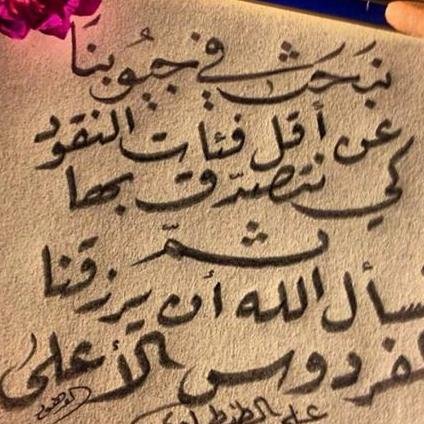 نبحث في جيوبنَا
عن أقل فئات النقود
كي نتصدّق بها
ثمّ
نسأل الله أن يرزقنا
الفردوس الأعلى
علي الطنطاوي